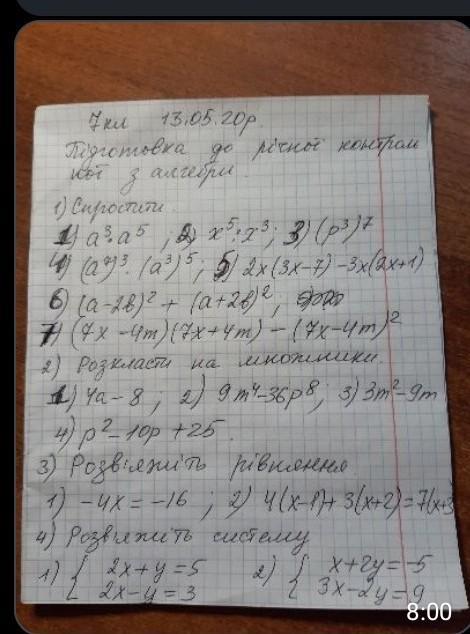 7кл 13.05.20р.
Підготовка до річної контроль
ної з алгебри.
1) Спростити.
1) a³·a⁵ ; 2) x⁵:x³; 3) (p³)⁷
4) (a⁷)³·(a³)⁵; 5) 2x(3x-7)-3x(2x+1)
6) (a-2b)² + (a+2b)²;
7) (7x-4m)(7x+4m) - (7x-4m)²
2) Розкласти на множники.
1) 4a-8 ; 2) 9m⁴-36p⁸; 3) 3m²-9m
4) p²-10p+25.
3) Розв'яжіть рівняння.
1) -4x = -16 ; 2) 4(x-1)+3(x+2)=7(x+3
4) Розв'яжіть систему
1) { 2x+y=5 2) { x+2y=-5
2x-y=3 3x-2y=9
8:00